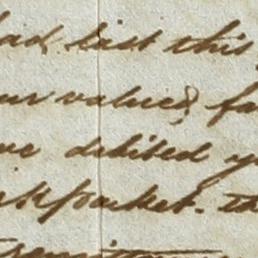 had last this
our valued fa
ve debited y
rk packet. th